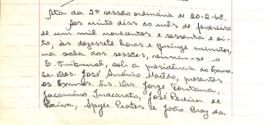 Ata da 2ª sessão ordinária de 20-2-68.
Aos vinte dias do mês de fevereiro
de um mil novecentos e sessenta e oi-
to, às dezessete horas e quinze minutos,
na sala das sessões, reuniu-se o
E. Tribunal, sob a presidência do Exmo.
Sr. Des. José Américo Macedo, presentes
os Exmos. Srs. Drs. Jorge Fontana,
Jacomino Inacarato, José Pereira de
Paiva, Ayres Costa e João Braz da